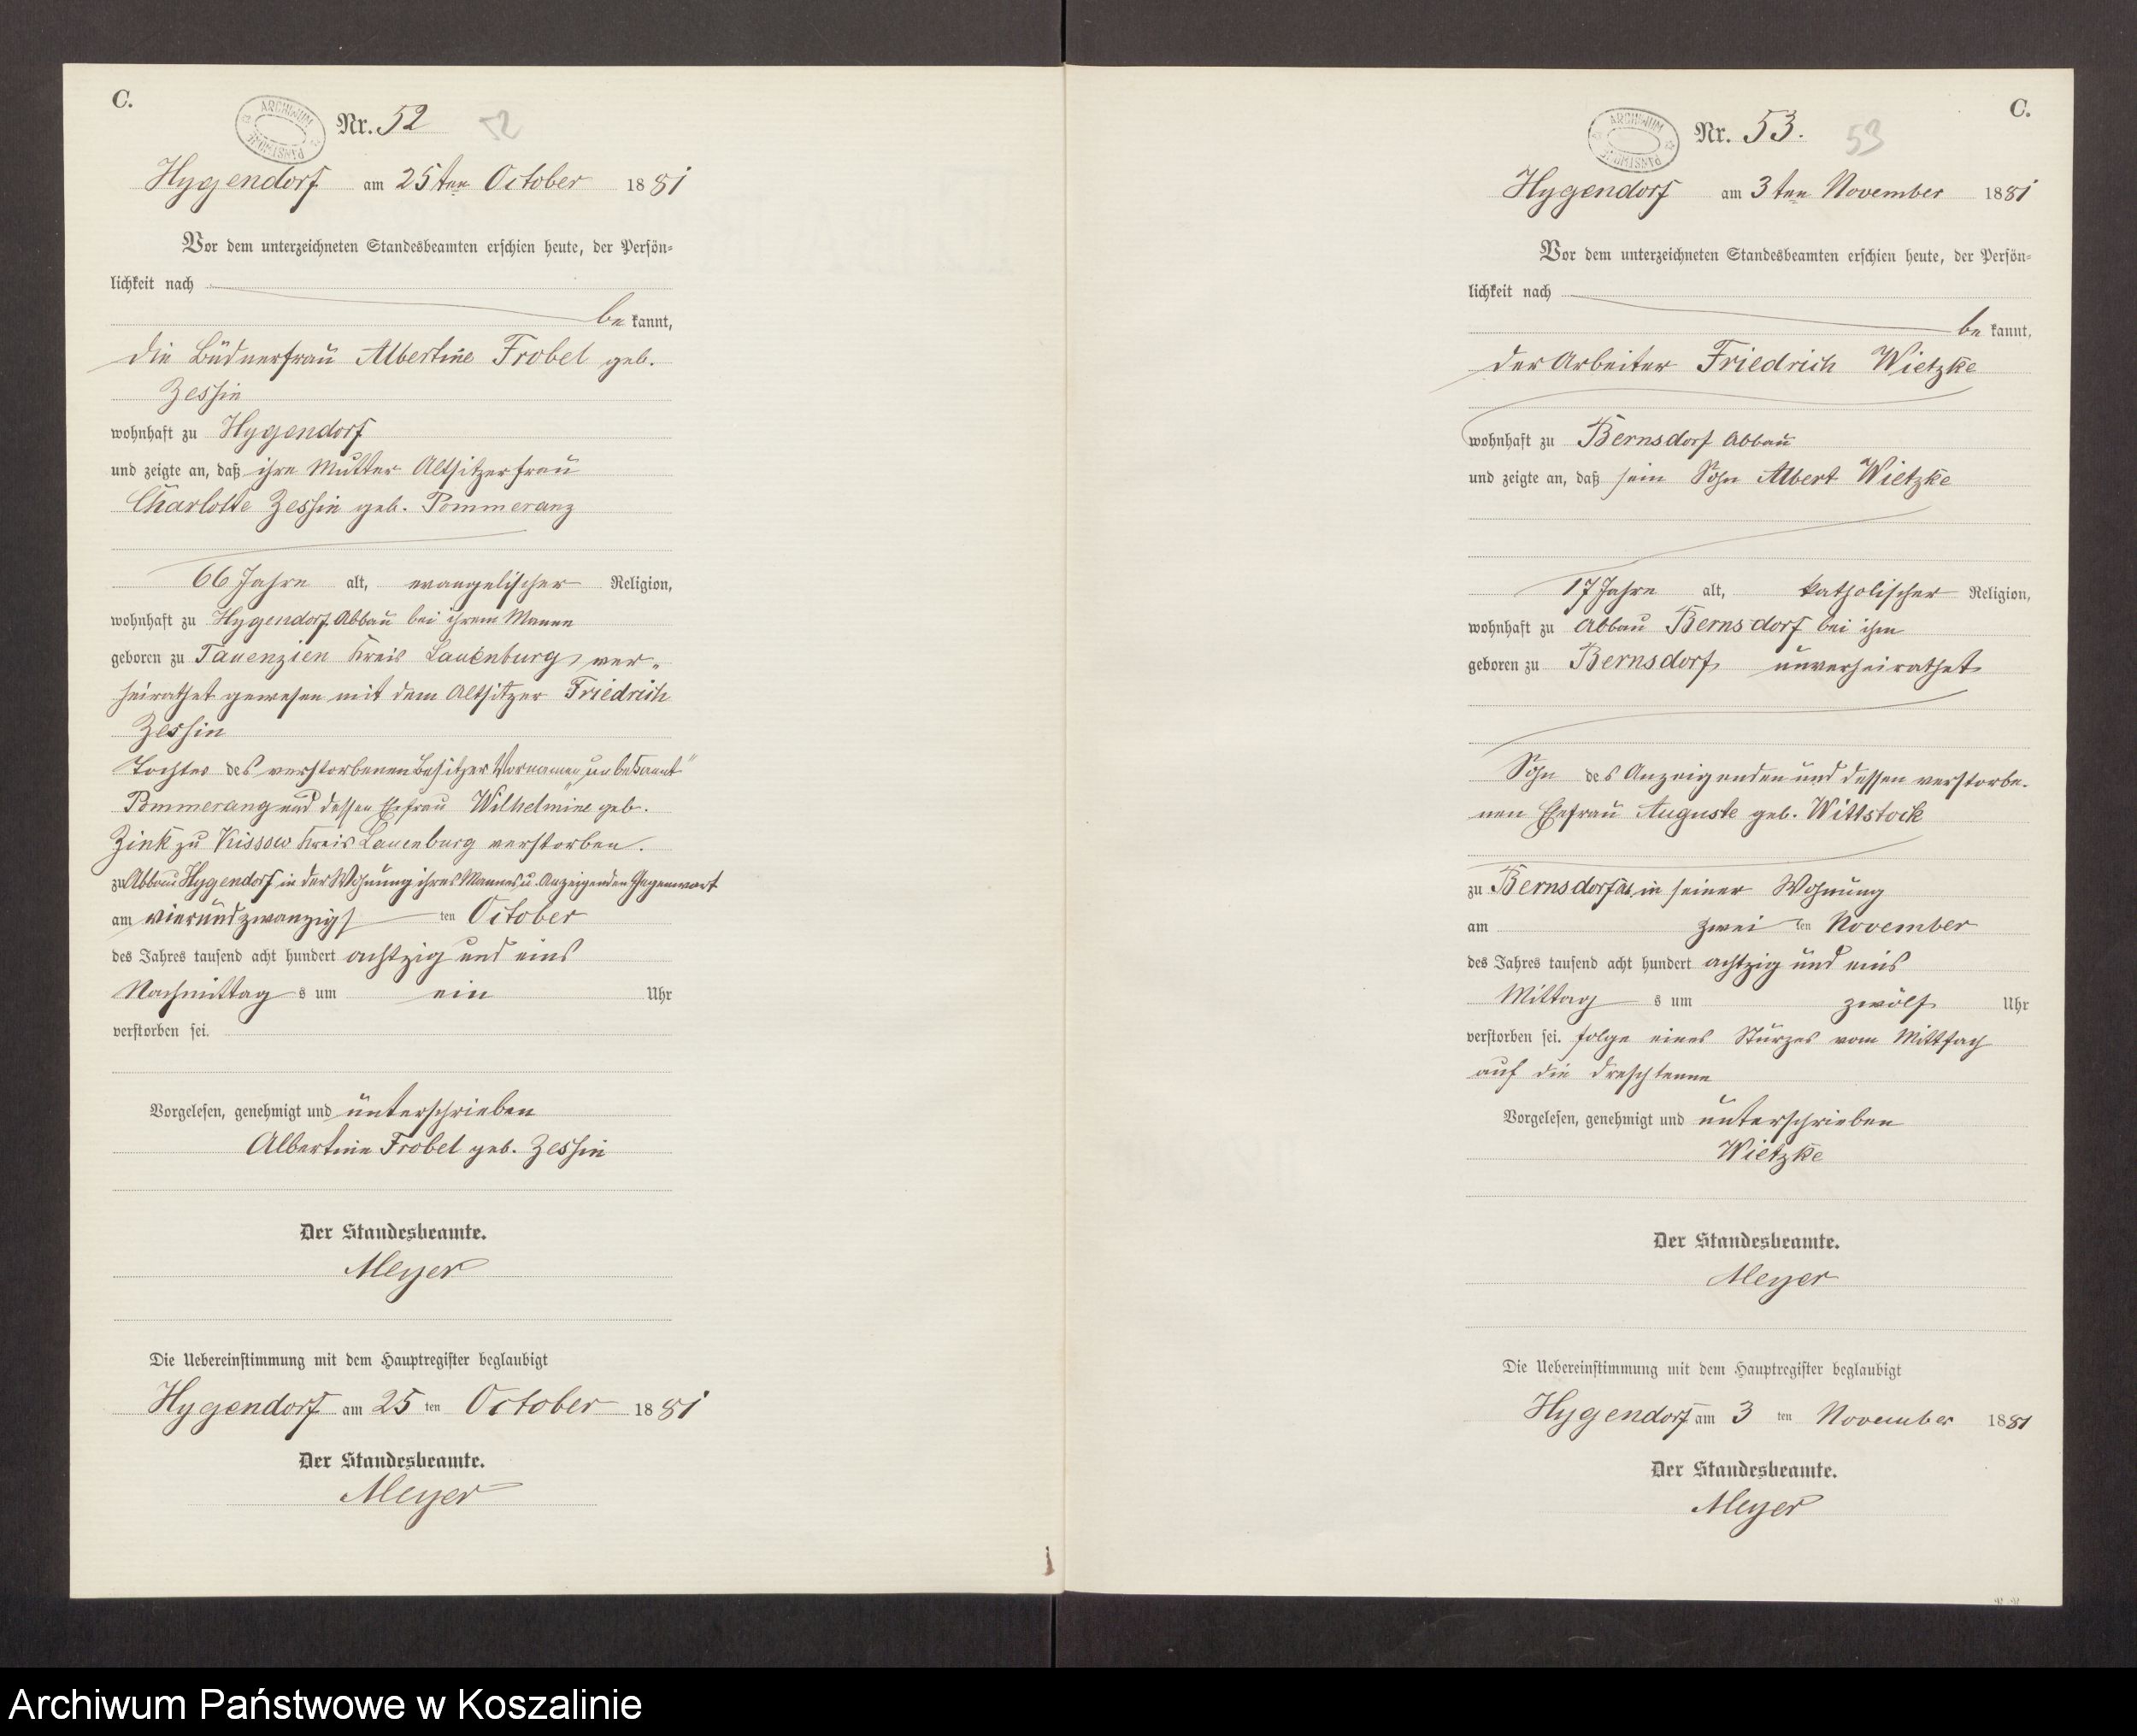 C.
ARCHIWUM PAŃSTWOWE
Nr. 52
52
Hygendorf am 25ten October 1881
Vor dem unterzeichneten Standesbeamten erschien heute, der Persön-
lichkeit nach
be kannt,
die Büdnerfrau Albertine Frobel geb.
Zessin
wohnhaft zu Hygendorf
und zeigte an, daß ihre Mutter Altsitzerfrau
Charlotte Zessin geb. Pommeranz
66 Jahre alt, evangelischer Religion,
wohnhaft zu Hygendorf Abbau bei ihrem Manne
geboren zu Tauenzien Kreis Lauenburg, ver-
heirathet gewesen mit dem Altsitzer Friedrich
Zessin
Tochter des verstorbenen Besitzer Vornamen „unbekannt"
Pommeranz und dessen Ehefrau Wilhelmine geb.
Zink zu Krissow Kreis Lauenburg verstorben.
zu Abbau Hygendorf in der Wohnung ihres Mannes u. Anzeigenden Gegenwart
am vierundzwanzigs ten October
des Jahres tausend acht hundert achtzig und eins
Nachmittag s um ein Uhr
verstorben sei.
Vorgelesen, genehmigt und unterschrieben
Albertine Frobel geb. Zessin
Der Standesbeamte.
Meyer
Die Uebereinstimmung mit dem Hauptregister beglaubigt
Hygendorf am 25 ten October 1881
Der Standesbeamte.
Meyer
C.
ARCHIWUM PAŃSTWOWE
Nr. 53.
53
Hygendorf am 3ten November 1881
Vor dem unterzeichneten Standesbeamten erschien heute, der Persön-
lichkeit nach
be kannt,
der Arbeiter Friedrich Wietzke
wohnhaft zu Bernsdorf Abbau
und zeigte an, daß sein Sohn Albert Wietzke
17 Jahre alt, katholischer Religion,
wohnhaft zu Abbau Bernsdorf bei ihm
geboren zu Bernsdorf, unverheirathet
Sohn des Anzeigenden und dessen verstorbe-
nen Ehefrau Auguste geb. Wittstock
zu Bernsdorf in seiner Wohnung
am zwei ten November
des Jahres tausend acht hundert achtzig und eins
Mittag s um zwölf Uhr
verstorben sei. folge eines Sturzes vom Mittfach
auf die Dreschtenne
Vorgelesen, genehmigt und unterschrieben
Wietzke
Der Standesbeamte.
Meyer
Die Uebereinstimmung mit dem Hauptregister beglaubigt
Hygendorf am 3 ten November 1881
Der Standesbeamte.
Meyer
Archiwum Państwowe w Koszalinie